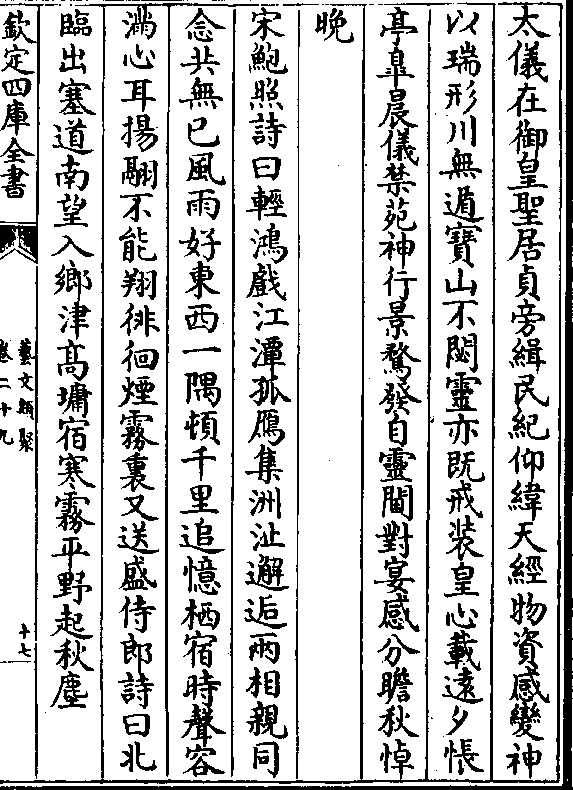 太儀在御皇聖居貞旁緝民紀仰緯天經物資感變神
以瑞形川無遁寳山不閟靈亦既戒装皇心載遠夕悵
亭臯晨儀禁苑神行景騖發自靈閫對宴感分瞻秋悼
晩
宋鮑照詩曰輕鴻戲江潭孤鴈集洲沚邂逅兩相親同
念共無已風雨好東西一隅頓千里追憶栖宿時聲容
滿心耳揚翮不能翔徘徊煙霧裏又送盛侍郎詩曰北
臨出塞道南望入鄉津髙墉宿寒霧平野起秋塵
欽定四庫全書
藝文類聚
卷二十九
十七